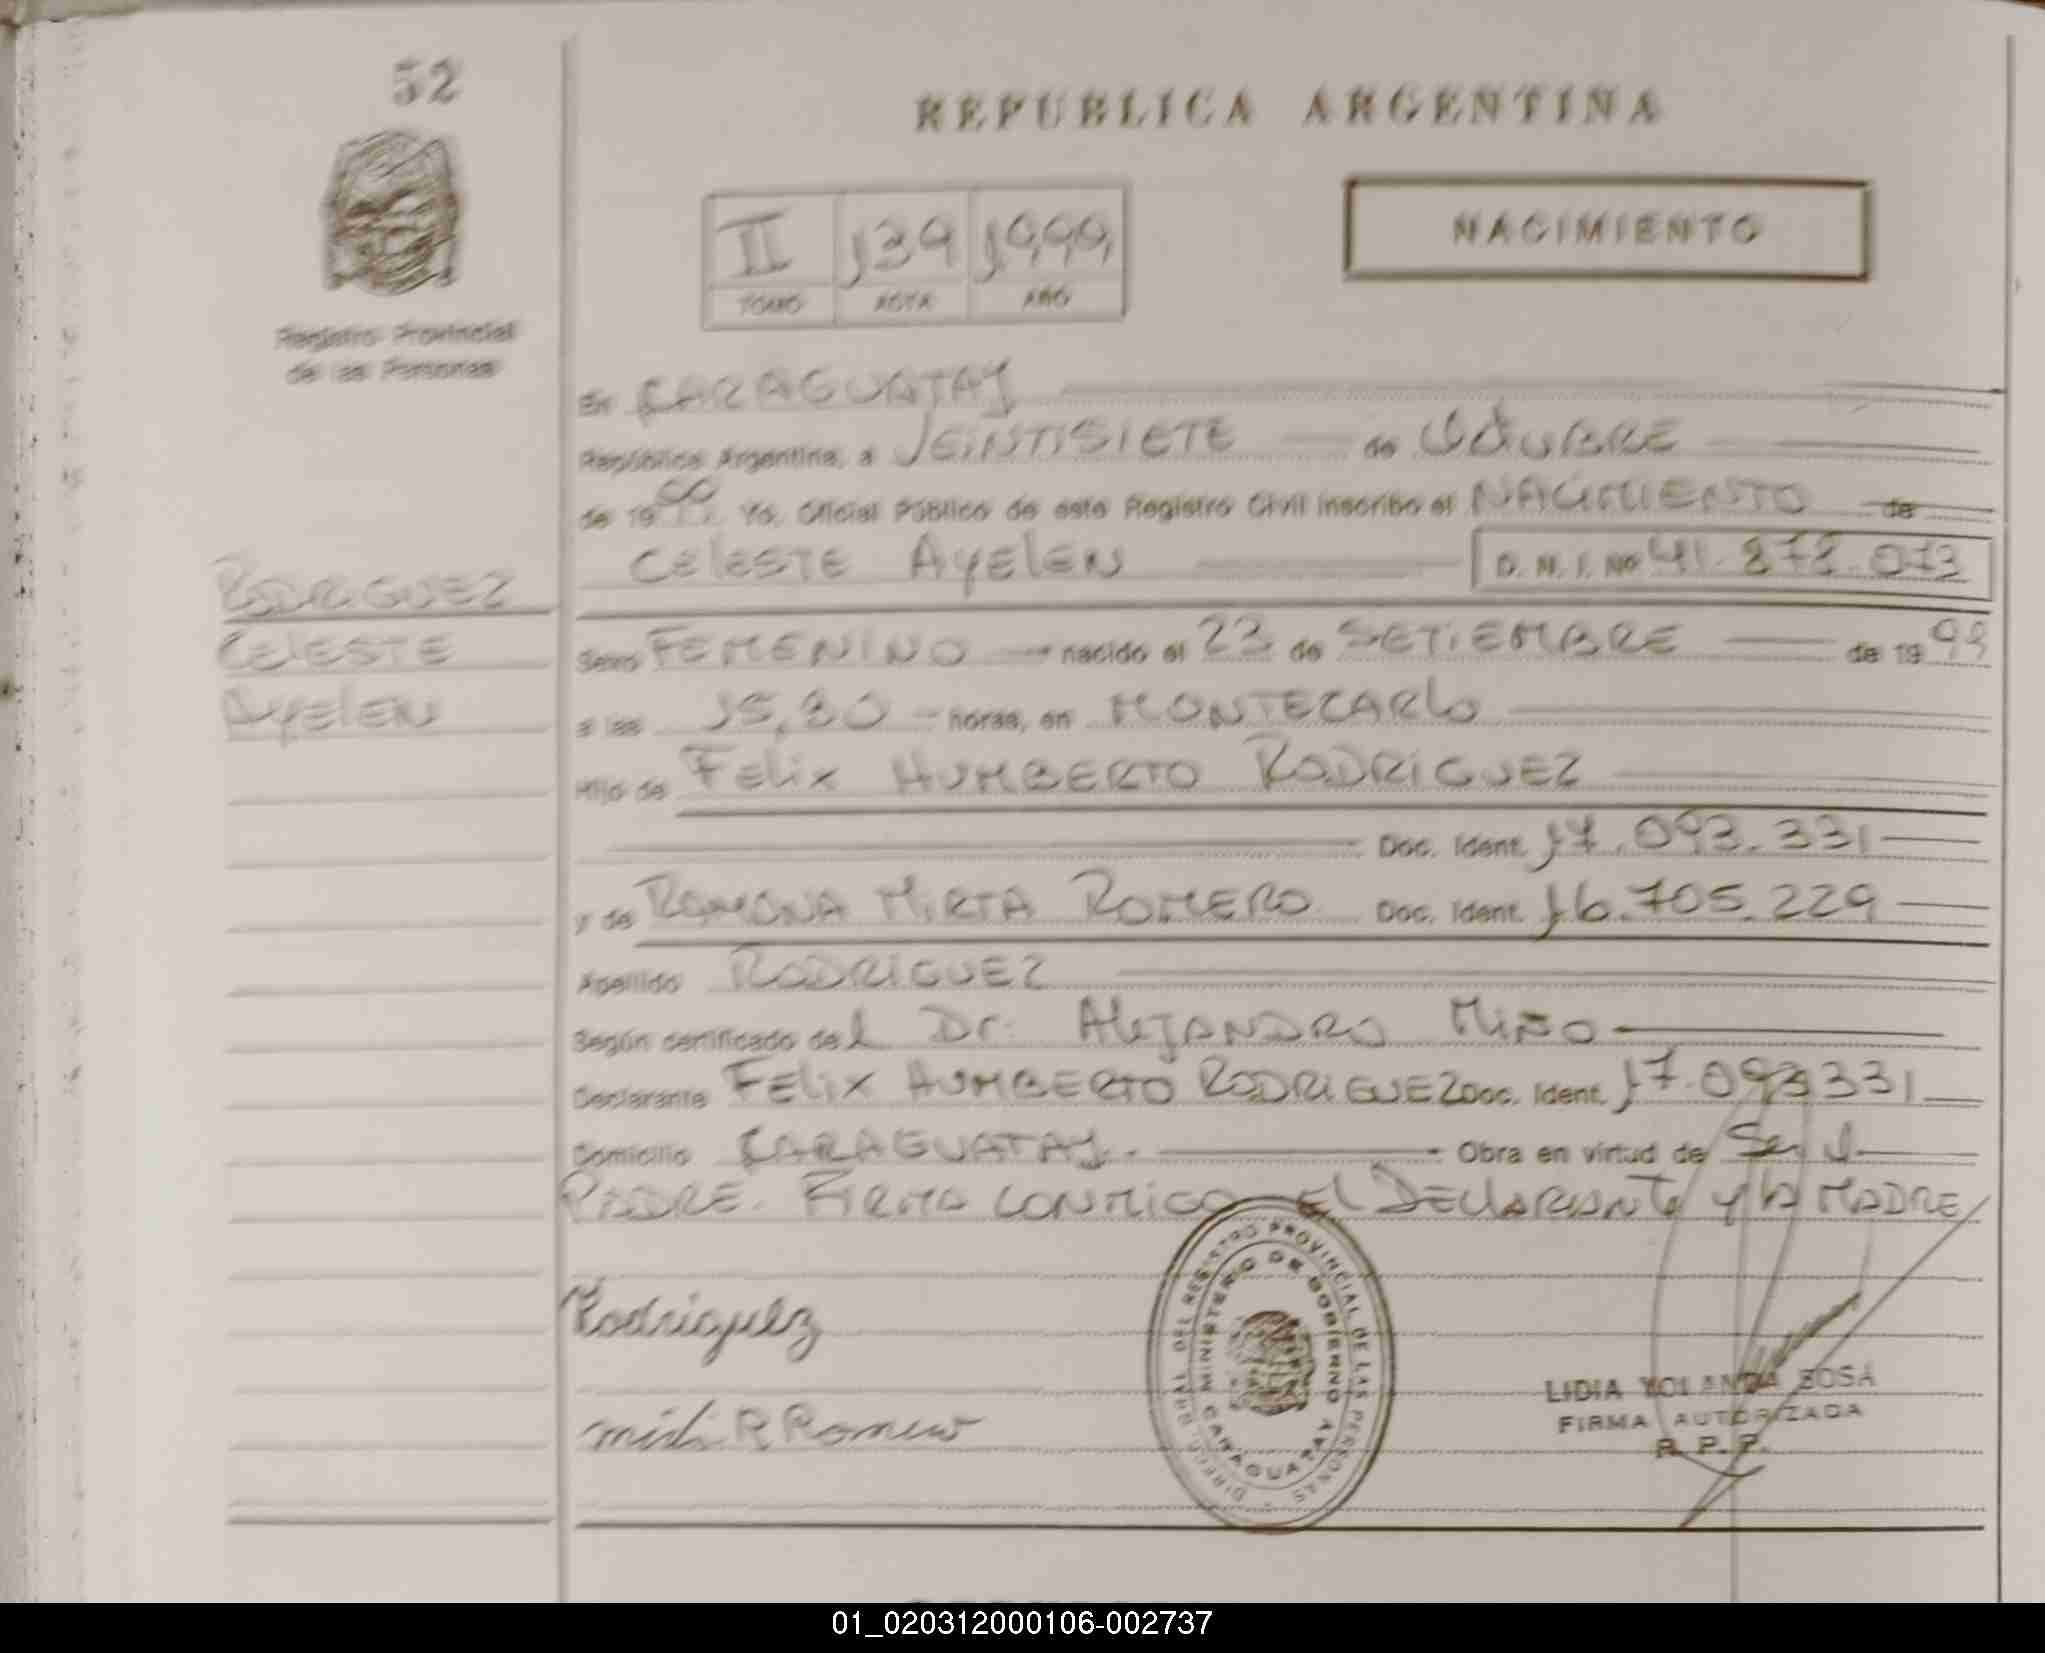 52
REPUBLICA ARGENTINA
NACIMIENTO
II 139 1999
TOMO ACTA AÑO
Registro Provincial
de las Personas
En CARAGUATAY
República Argentina, a VEINTISIETE de OCTUBRE
de 19 Yo, Oficial Público de este Registro Civil inscribo el NACIMIENTO de
CELESTE AYELEN D. N. I. No 41.872.073
RODRIGUEZ
CELESTE
AYELEN
Sexo FEMENINO nacido el 23 de SETIEMBRE de 19 99
a las 15,30 horas, en MONTECARLO
Hijo de FELIX HUMBERTO RODRIGUEZ
Doc. Ident. 17.093.331
y de RAMONA MIRTA ROMERO Doc. Ident. 16.705.229
Apellido RODRIGUEZ
Según certificado del Dr. ALEJANDRO MIÑO
Declarante FELIX HUMBERTO RODRIGUEZ Doc. Ident. 17.093331
Domicilio CARAGUATAY. Obra en virtud de Ser el
PADRE. FIRMA CONMIGO EL DECLARANTE y la MADRE
Rodriguez
Mirta R Romero
DIRECC. GRAL. DEL REGISTRO PROVINCIAL DE LAS PERSONAS
MINISTERIO DE GOBIERNO
CARAGUATAY
LIDIA YOLANDA SOSA
FIRMA AUTORIZADA
R. P. P.
01_020312000106-002737